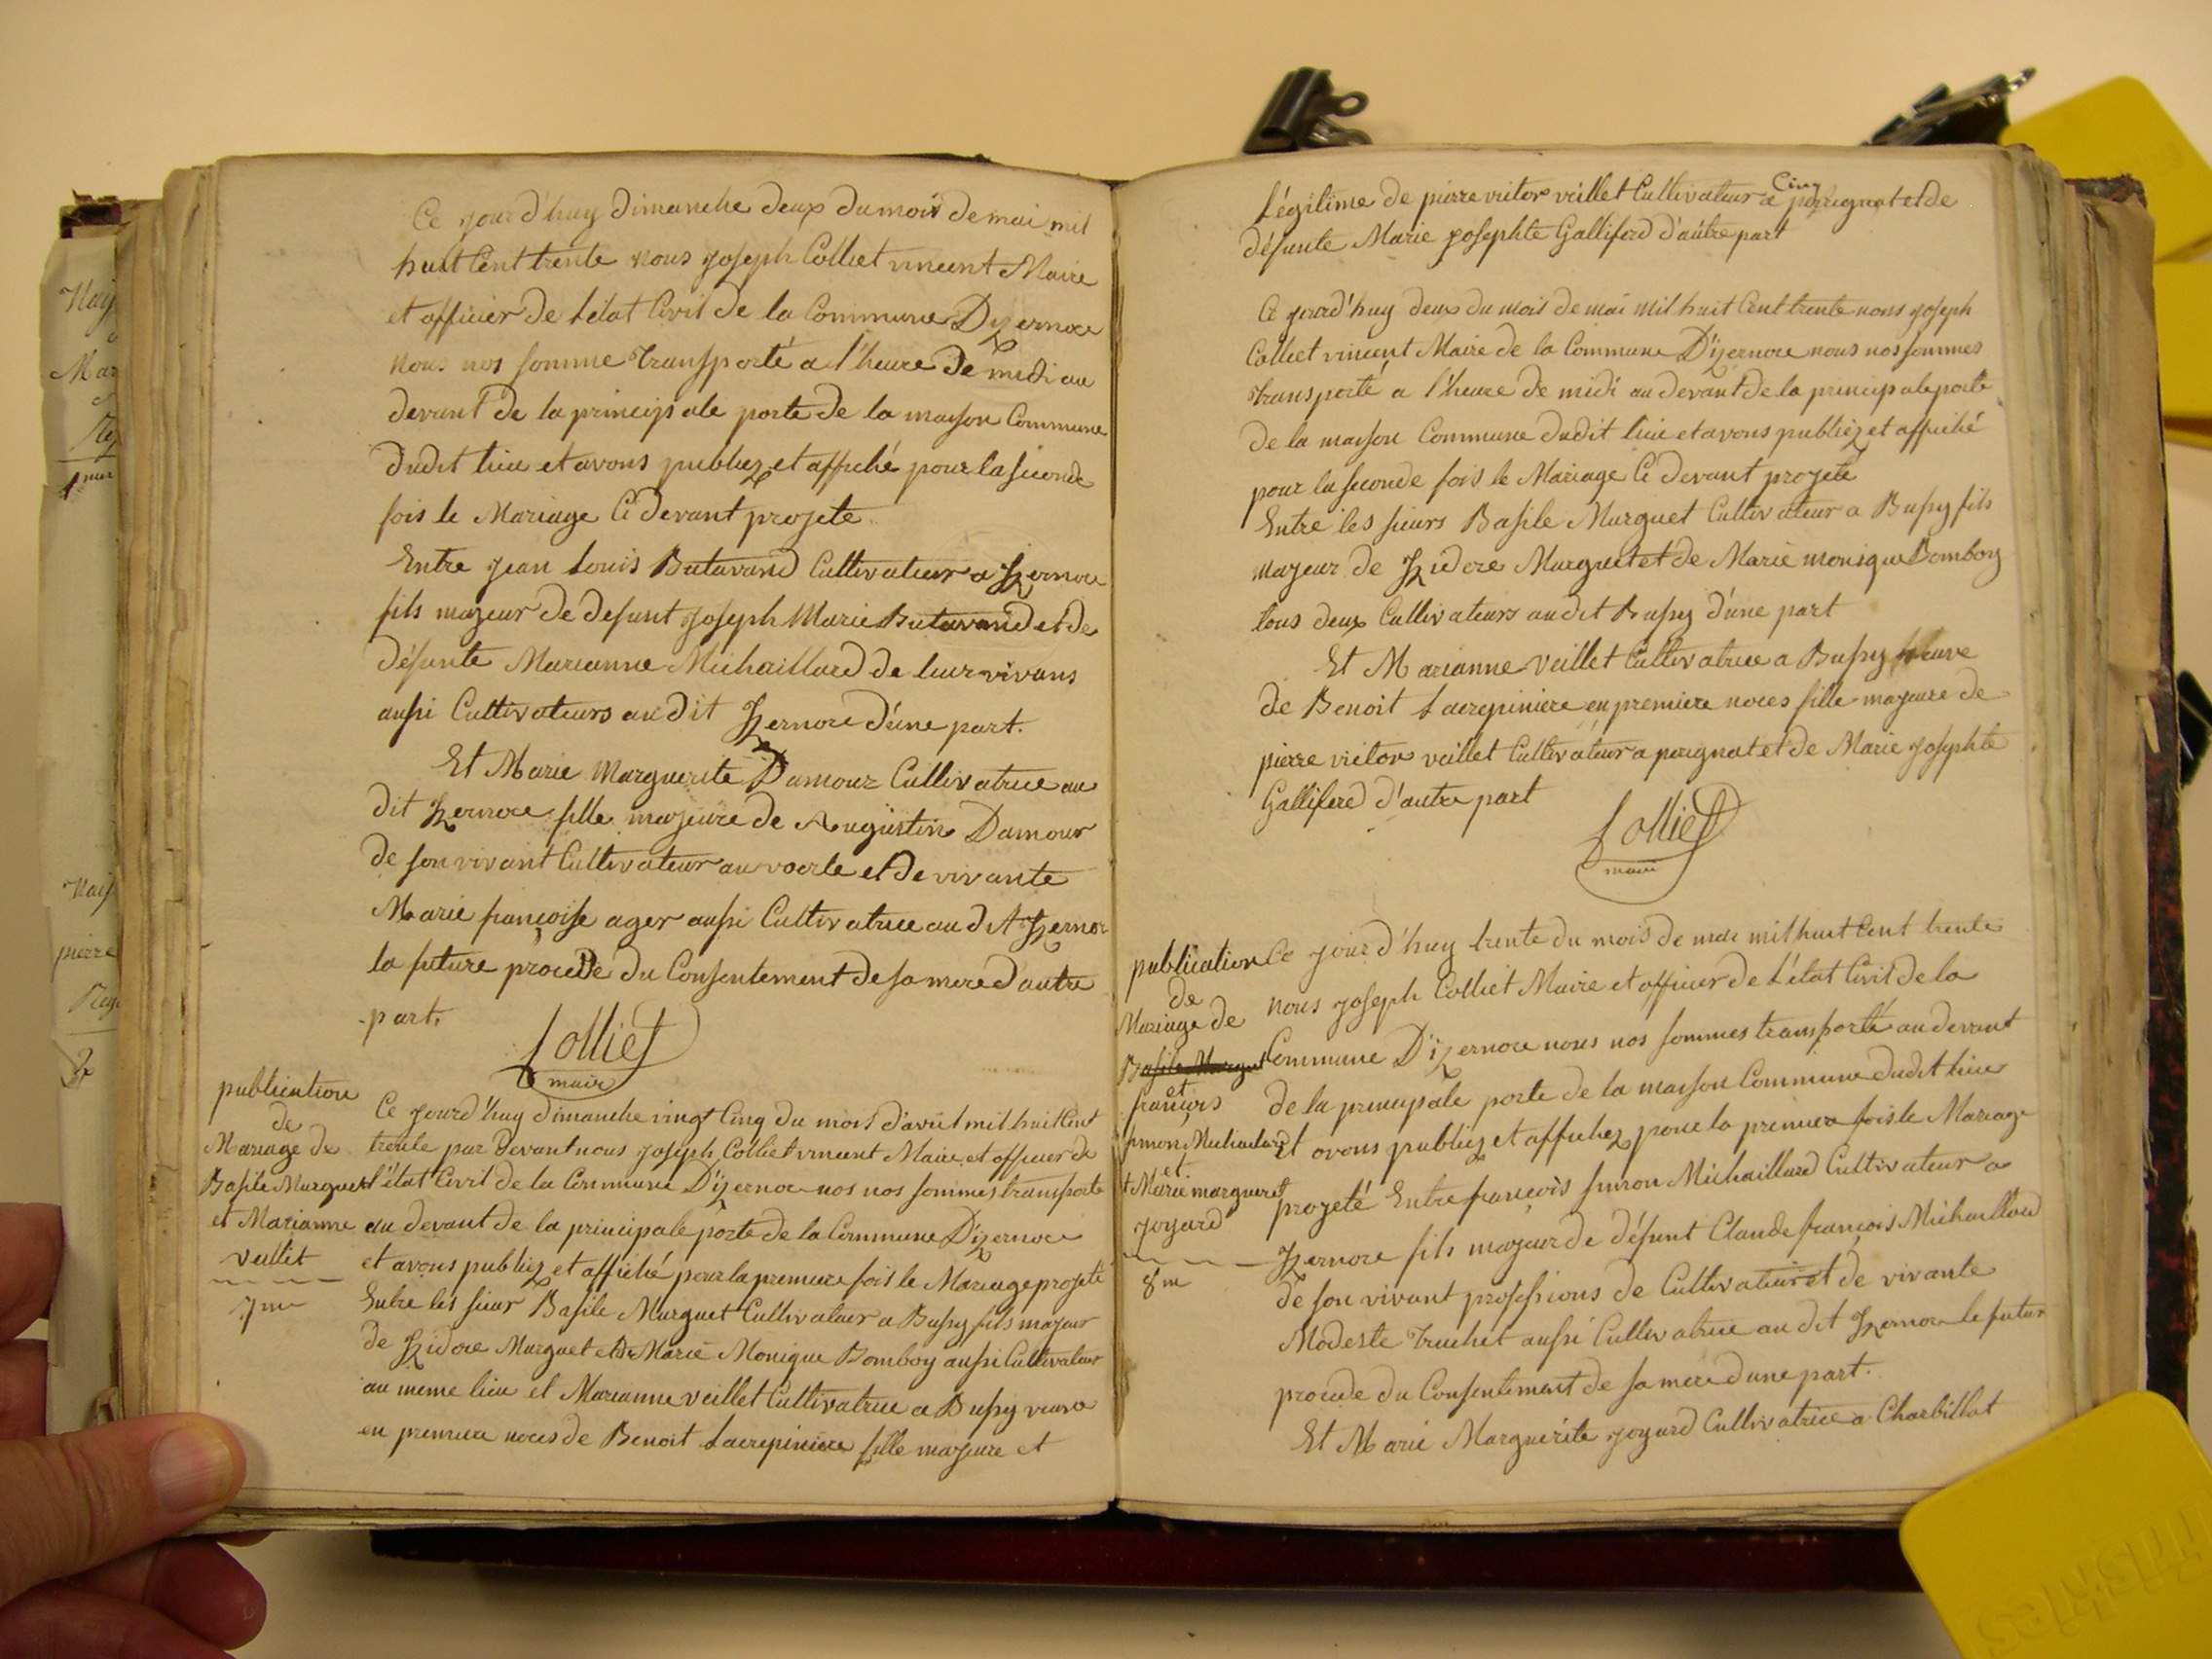 Ce jourd'huy dimanche deux du mois de mai mil
huit Cent trente nous joseph Colliet vincent Maire
et officier de l'état Civil de la Commune D'izernore
nous nos somme transporté a l'heure de midi au
devant de la principale porte de la maison Commune
dudit lieu et avons publiez et affiché pour la seconde
fois le Mariage Ci devant projete
Entre jean Louis Butavand Cultivateur a Izernore
fils majeur de defunt joseph Marie Butavand et de
défunte Marianne Michaillard de leur vivans
aussi Cultivateurs au dit Izernore d'une part.
Et Marie Marguerite Damour Cultivatrice au
dit Izernore fille majeure de Augustin Damour
de son vivant Cultivateur au voerle et de vivante
Marie françoise ager aussi Cultivatrice au dit Izernor
la future procede du Consentement de sa mere d'autre
part.
Colliet
maire
publication
de
Mariage de
Basile Murguet
et Marianne
veillet
7me
Ce jourd'huy dimanche vingt Cinq du mois d'avril mil huit Cent
trente par devant nous joseph Colliet vincent Maire et officier de
l'état Civil de la Commune D'izernore nos nos sommes transporte
au devant de la principale porte de la Commune D'izernore
et avons publiez et affiché pour la premiere fois le Mariage projeté
Entre les sieur Basile Murguet Cultivateur a Bussy fils majeur
de Izidore Murguet et de Marie Monique Bomboy aussi Cultivateur
au meme lieu et Marianne veillet Cultivatrice a Bussy veuve
en premiere noces de Benoit Lacrepiniere fille majeure et
Légitime de pierre victor veillet Cultivateur a peyrignat et de
défunte Marie josephte Galliferd d'autre part
Ce jourd'huy deux du mois de mai mil huit Cent trente nous joseph
Colliet vincent Maire de la Commune D'izernore nous nos sommes
transporté a l'heure de midi au devant de la principale porte
de la maison Commune dudit lieu et avons publiez et affiché
pour la seconde fois le Mariage Ci devant projete
Entre les sieurs Basile Murguet Cultivateur a Bussy fils
majeur de Izidore Murguet et de Marie monique Bomboy
tous deux Cultivateurs audit Bussy d'une part
Et Marianne Veillet Cultivatrice a Bussy veuve
de Benoit Lacrepiniere en premiere noces fille majeure de
pierre victor veillet Cultivateur a peyrignat et de Marie josephte
Galliferd d'autre part
Colliet
maire
publication
de
Mariage de
Basile Murguet
et
françois
simon Michaillard
et
Marie marguerit
joyard
8m
Ce jourd'huy trente du mois de mai mil huit Cent trente
nous joseph Colliet Maire et officier de L'état Civil de la
Commune D'izernore nous nos sommes transporté au devant
de la principale porte de la maison Commune dudit lieu
et avons publiez et affichez pour la premiere fois le Mariage
projeté Entre françois simon Michaillard Cultivateur a
Izernore fils majeur de défunt Claude françois Michaillard
de son vivant professions de Cultivateur et de vivante
Modeste Truchet aussi Cultivatrice au dit Izernore le futur
procede du Consentement de sa mere d'une part.
Et Marie Marguerite joyard Cultivatrice a Charbillat